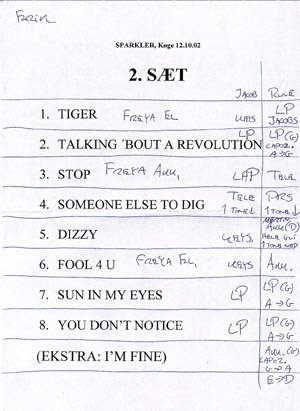 SPARKLER, Køge 12.10.02
2. SÆT
JACOB RUNE
1. TIGER FREYA EL KEYS LP JACOBS
2. TALKING ´BOUT A REVOLUTION LP LP (G) CAPO 2. A → G
3. STOP FREYA AKU. LAP TELE
4. SOMEONE ELSE TO DIG TELE 1 TONE ↓ PRS 1 TONE ↓
5. DIZZY KEYS. AKU (D) HELE GUI 1 TONE NED
6. FOOL 4 U FREYA EL. KEYS AKU.
7. SUN IN MY EYES LP LP (G) A → G
8. YOU DON’T NOTICE LP LP (G) A → G
(EKSTRA: I’M FINE) AKU. (G) CAPO 2. G → A
E → D